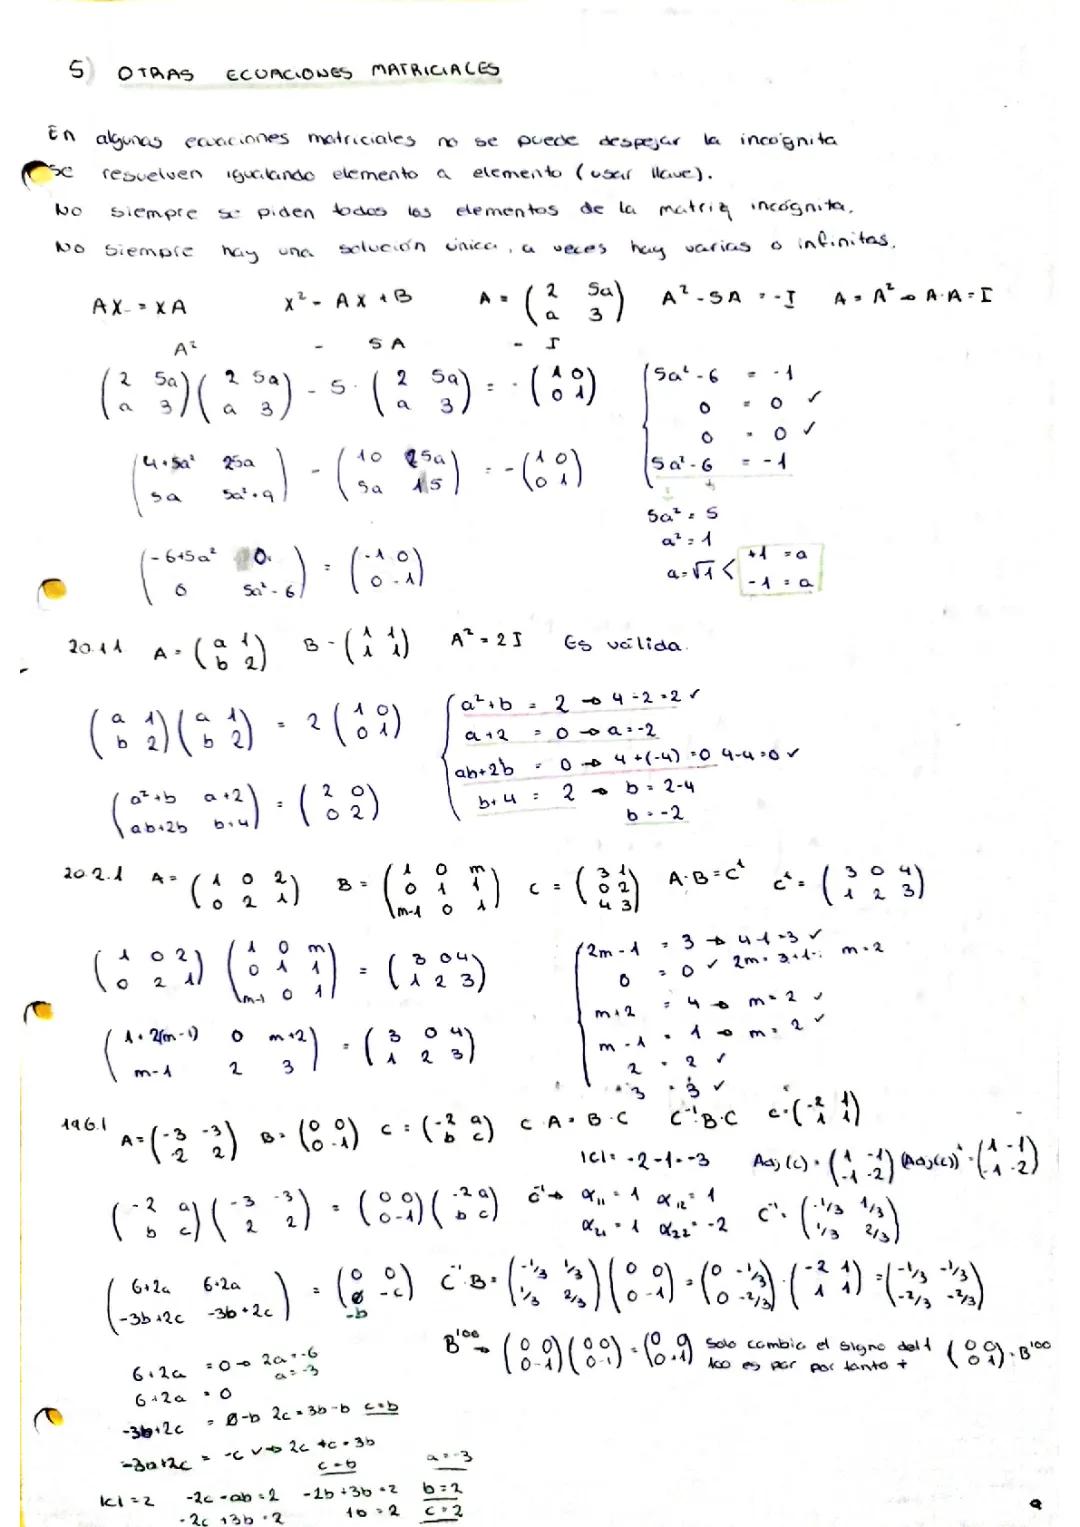 5) OTRAS ECUACIONES MATRICIALES
En algunas ecuaciones matriciales no se puede despejar la incógnita
se resuelven igualando elemento a elemento (usar llave).
No siempre se piden todos los elementos de la matriz incógnita.
No siempre hay una solución única, a veces hay varias o infinitas.
AX = XA X² - AX + B A = (2 5a; a 3) A² - 5A = -I A = A² → A·A = I
A² - 5A - I
(2 5a; a 3)(2 5a; a 3) - 5·(2 5a; a 3) = -(1 0; 0 1)
{5a² - 6 = -1
0 = 0 ✓
0 = 0 ✓
5a² - 6 = -1
(4+5a² 25a; 5a 5a²+9) - (10 25a; 5a 15) = -(1 0; 0 1)
5a² = 5
a² = 1
a = √1 < +1 = a
-1 = a
(-6+5a² 0; 0 5a²-6) = (-1 0; 0 -1)
20.1.1 A = (a 1; b 2) B = (1 1; 1 1) A² = 2I Es válida.
(a 1; b 2)(a 1; b 2) = 2(1 0; 0 1)
{a²+b = 2 → 4-2=2 ✓
a+2 = 0 → a=-2
ab+2b = 0 → 4+(-4)=0 4-4=0 ✓
b+4 = 2 → b = 2-4
b = -2
(a²+b a+2; ab+2b b+4) = (2 0; 0 2)
20.2.1 A = (1 0 2; 0 2 1) B = (1 0 m; 0 1 1; m-1 0 1) C = (3 1; 0 2; 4 3) A·B = Cᵗ Cᵗ = (3 0 4; 1 2 3)
(1 0 2; 0 2 1)(1 0 m; 0 1 1; m-1 0 1) = (3 0 4; 1 2 3)
{2m-1 = 3 → 4-1=3 ✓
0 = 0 ✓ 2m = 3+1 m=2
m+2 = 4 → m=2 ✓
m-1 = 1 → m=2 ✓
2 = 2 ✓
3 = 3 ✓
(1+2(m-1) 0 m+2; m-1 2 3) = (3 0 4; 1 2 3)
19.6.1 A = (-3 -3; 2 2) B = (0 0; 0 -1) C = (-2 a; b c) C·A = B·C C⁻¹·B·C C = (-2 1; 1 1)
|C| = -2-1=-3 Adj(C) = (1 -1; -1 -2) (Adj(C))ᵗ = (1 -1; -1 -2)
(-2 a; b c)(-3 -3; 2 2) = (0 0; 0 -1)(-2 a; b c)
C⁻¹ → α₁₁ = 1 α₁₂ = 1
α₂₁ = 1 α₂₂ = -2 C⁻¹ = (-1/3 1/3; 1/3 2/3)
(6+2a 6+2a; -3b+2c -3b+2c) = (0 0; -b -c)
C⁻¹·B = (-1/3 1/3; 1/3 2/3)(0 0; 0 -1) = (0 -1/3; 0 -2/3)·(-2 1; 1 1) = (-1/3 -1/3; -2/3 -2/3)
B¹⁰⁰ → (0 0; 0 -1)(0 0; 0 -1) = (0 0; 0 1) Solo cambia el signo del 1
100 es par por tanto + (0 0; 0 1) = B¹⁰⁰
6+2a = 0 → 2a = -6
a = -3
6+2a = 0
-3b+2c = 0-b 2c = 3b-b c=b
-3a+2c = -c ✓→ 2c+c = 3b
c=b
|C| = 2 -2c-ab=2 -2b+3b=2
-2c+3b=2 1b=2
a = -3
b = 2
c = 2
9